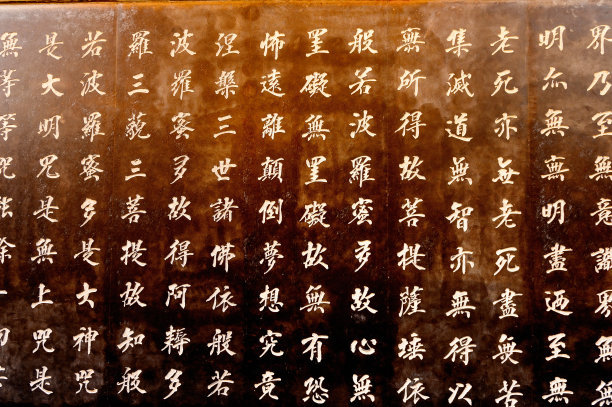 界乃至無意識界無無
明亦無無明盡迺至無
老死亦無老死盡無苦
集滅道無智亦無得以
無所得故菩提薩埵依
般若波羅蜜多故心無
罣礙無罣礙故無有恐
怖遠離顛倒夢想究竟
涅槃三世諸佛依般若
波羅蜜多故得阿耨多
羅三藐三菩提故知般
若波羅蜜多是大神咒
是大明咒是無上咒是
無等等咒能除一切苦